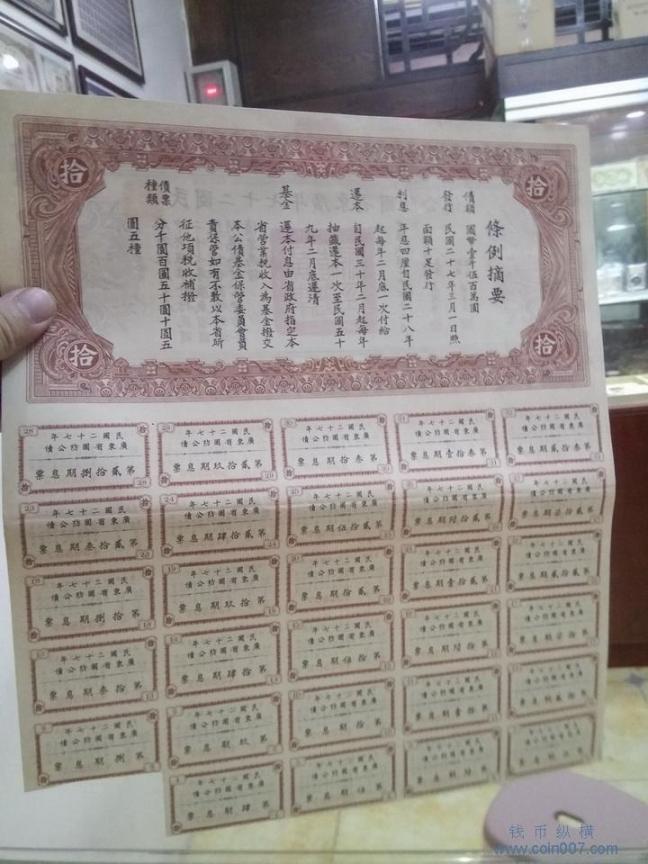 拾
拾
拾
拾
條例摘要
債額 國幣壹千伍百萬圓
發行 民國二十七年三月一日照
面額十足發行
利息 年息四厘自民國二十八年
起每年二月底一次付給
還本 自民國三十年二月起每年
抽籤還本一次至民國五十
九年二月底還清
基金 還本付息由省政府指定本
省營業稅收入為基金撥交
本公債基金保管委員會負
責保管如有不敷以本省所
徵他項稅收補撥
債票種類 分千圓百圓五十圓十圓五
圓五種
28
民國二十七年
廣東省國防公債
第貳拾捌期息票
29
民國二十七年
廣東省國防公債
第貳拾玖期息票
30
民國二十七年
廣東省國防公債
第叁拾期息票
31
民國二十七年
廣東省國防公債
第叁拾壹期息票
32
民國二十七年
廣東省國防公債
第叁拾貳期息票
23
民國二十七年
廣東省國防公債
第貳拾叁期息票
24
民國二十七年
廣東省國防公債
第貳拾肆期息票
民國二十七年
廣東省國防公債
第貳拾伍期息票
民國二十七年
廣東省國防公債
第貳拾陸期息票
民國二十七年
廣東省國防公債
第貳拾柒期息票
18
民國二十七年
廣東省國防公債
第拾捌期息票
19
民國二十七年
廣東省國防公債
第拾玖期息票
民國二十七年
廣東省國防公債
第貳拾期息票
民國二十七年
廣東省國防公債
第貳拾壹期息票
民國二十七年
廣東省國防公債
第貳拾貳期息票
13
民國二十七年
廣東省國防公債
第拾叁期息票
14
民國二十七年
廣東省國防公債
第拾肆期息票
民國二十七年
廣東省國防公債
第拾伍期息票
民國二十七年
廣東省國防公債
第拾陸期息票
民國二十七年
廣東省國防公債
民國二十七年
廣東省國防公債
第捌期息票
民國二十七年
廣東省國防公債
第玖期息票
民國二十七年
廣東省國防公債
第拾期息票
民國二十七年
廣東省國防公債
第拾壹期息票
民國二十七年
廣東省國防公債
民國二十七年
廣東省國防公債
第肆期息票
民國二十七年
廣東省國防公債
第伍期息票
錢币纵横
www.coin007.com